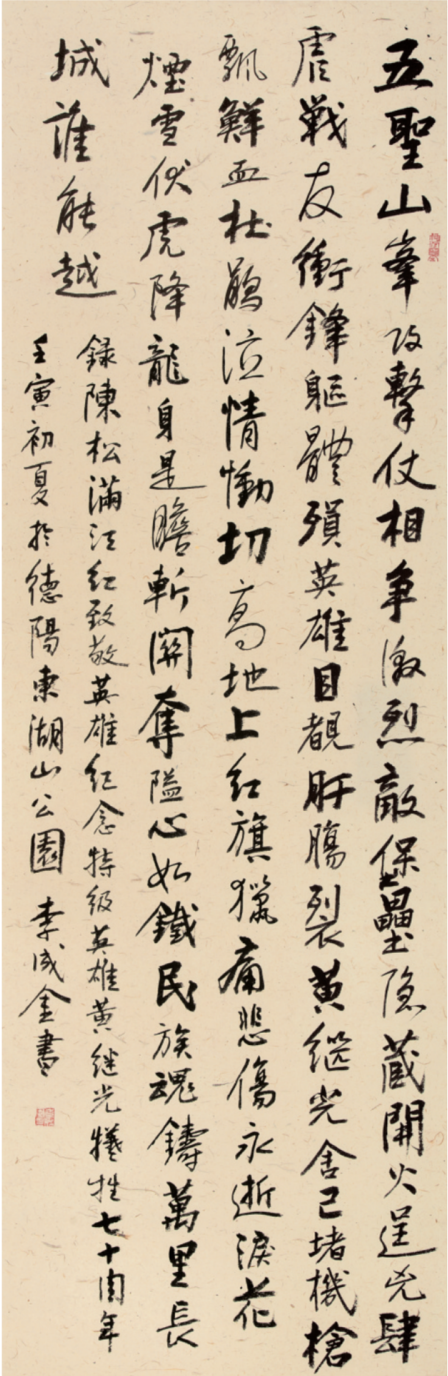 五聖山峯攻擊仗相争激烈敵堡壘隐藏開火逞兇肆
虐戰友衝鋒軀體殞英雄目覩肝腸裂黄继光舍己堵機槍
飄鮮血杜鹃泣情慟切高地上红旗獵痛悲傷永逝淚花
煙雪伏虎降龍身是膽斬關奪隘心如鐵民族魂鑄萬里長
城誰能越
録陳松滿江红致敬英雄纪念特级英雄黄继光犧牲七十周年
壬寅初夏於德陽東湖山公園 李成金書